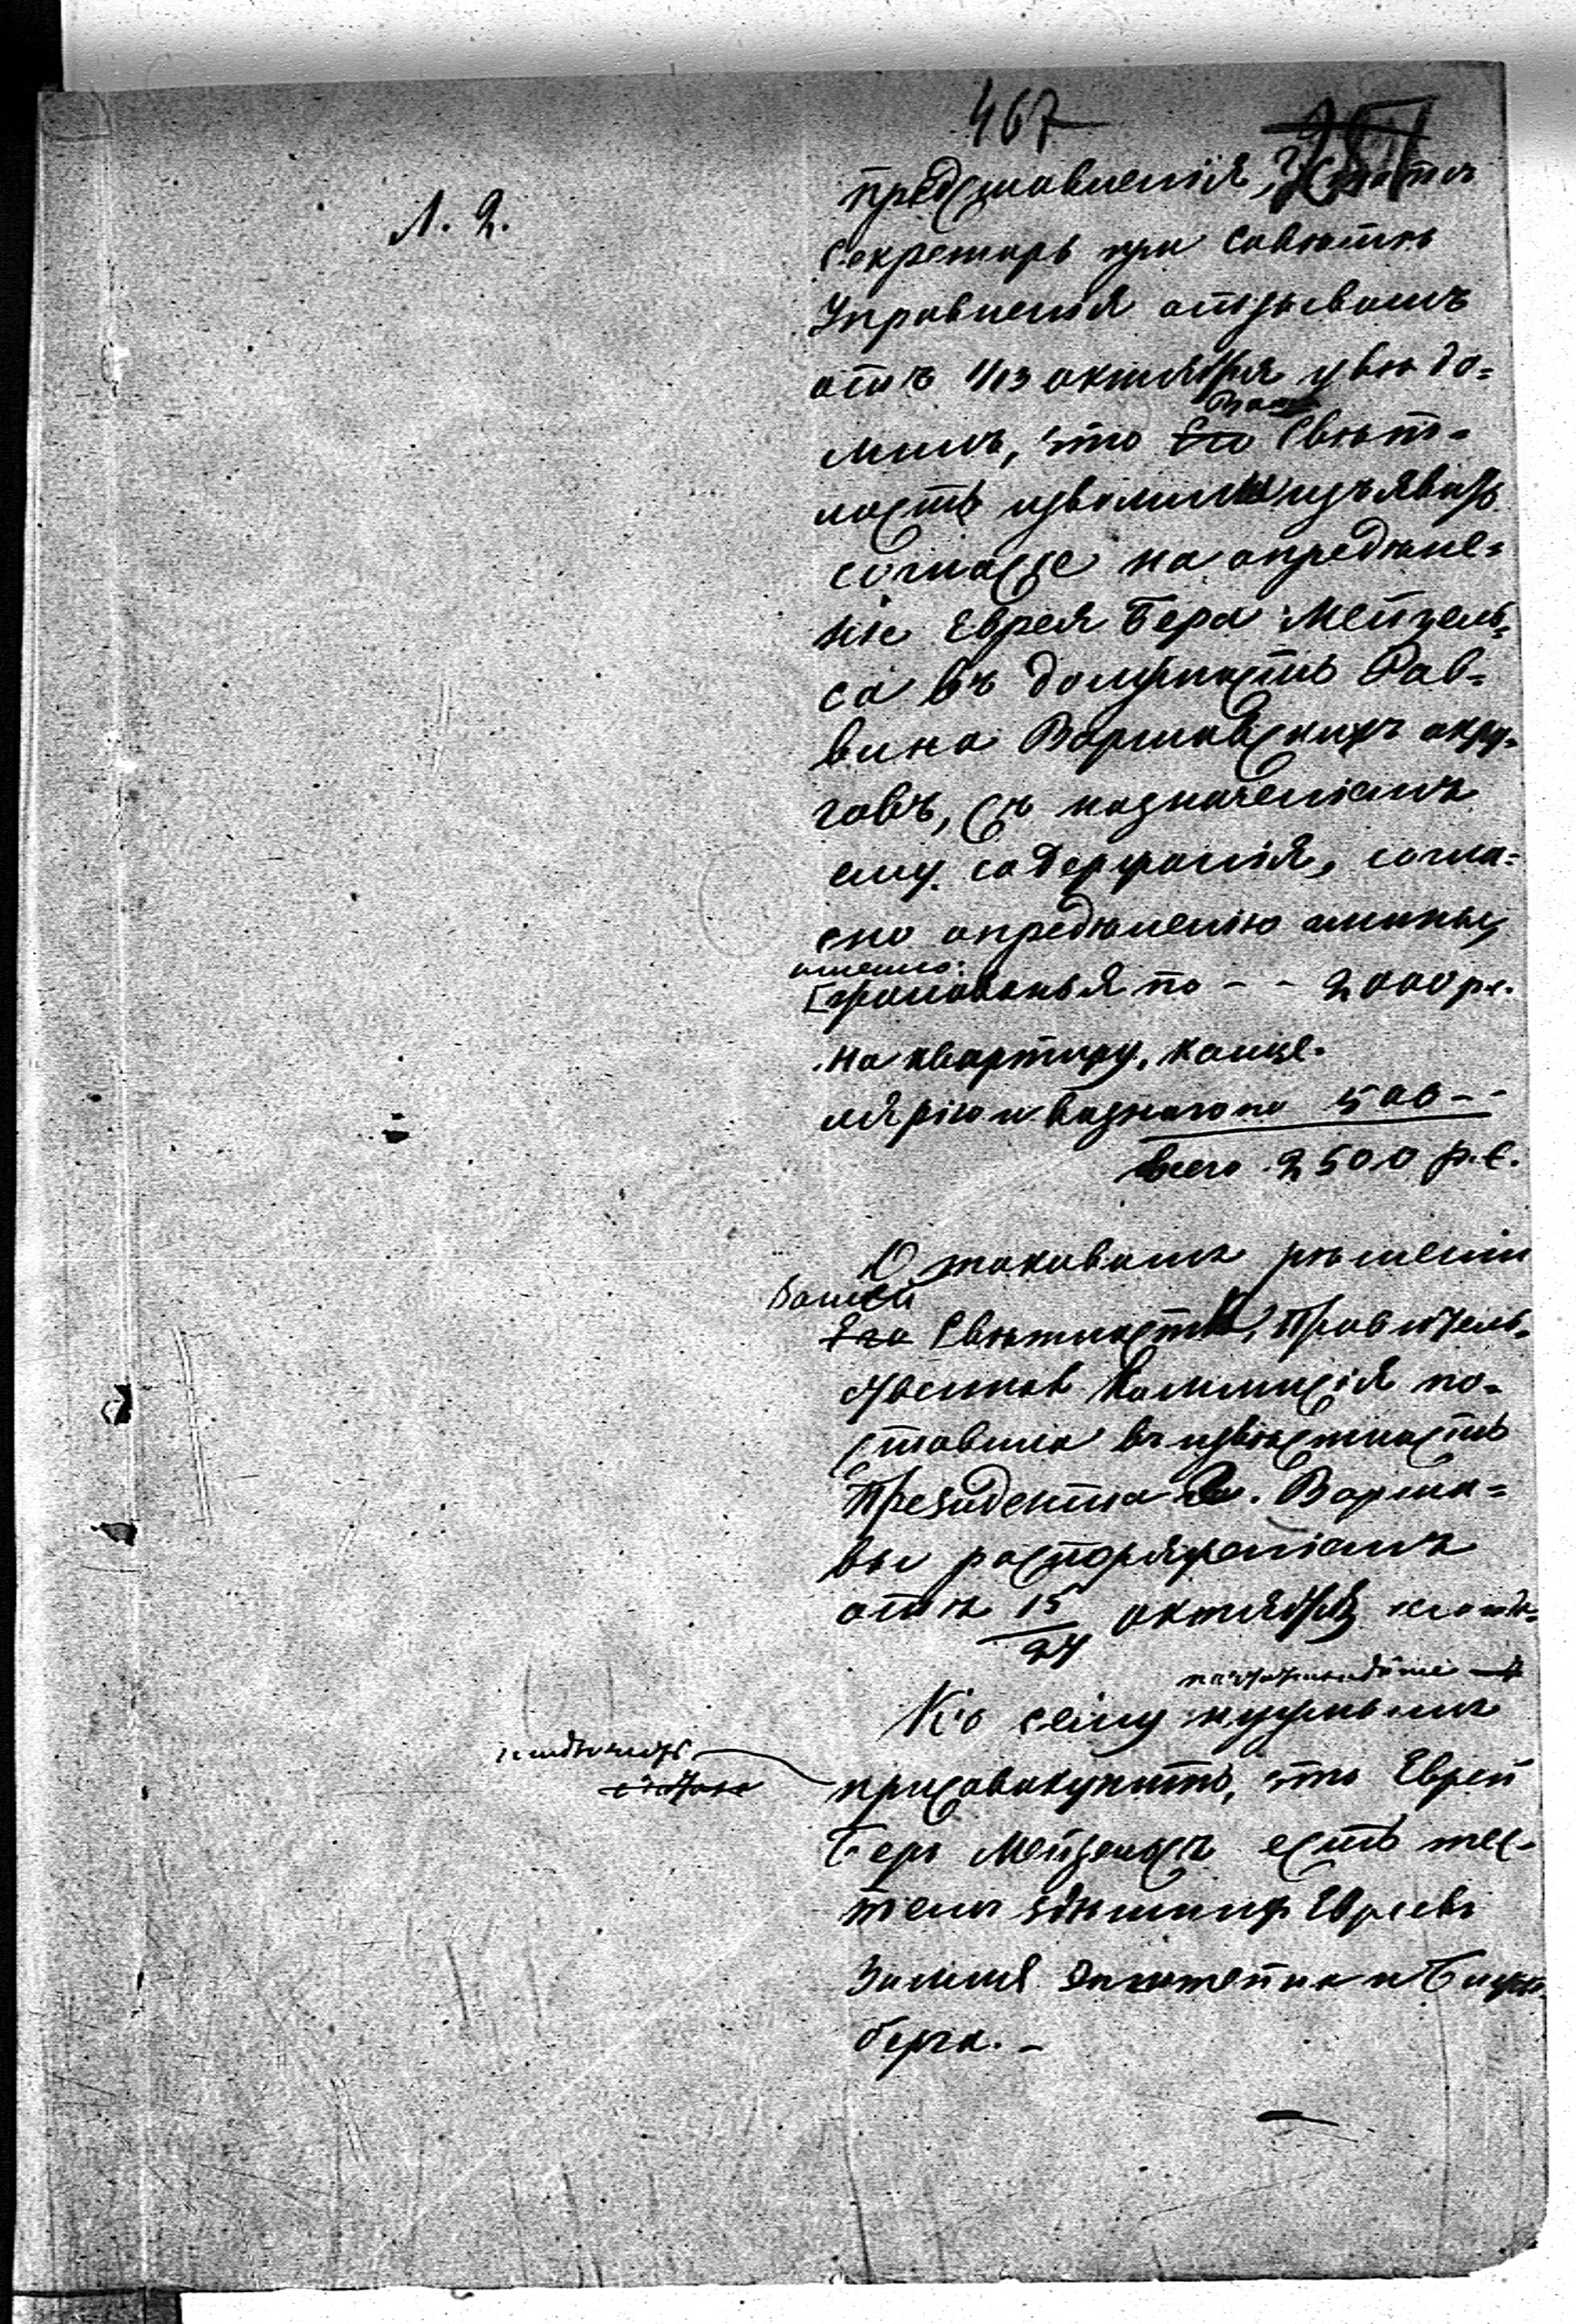 467
Л. 2.
представленія, Статсъ
Секретарь при Совѣтѣ
Управленія отзывомъ
отъ 1/13 октября увѣдо=
милъ, что Его Ваша Свѣт=
лость изволили изъявить
согласіе на опредѣле=
ніе Еврея Бера Мейзель=
са въ должность Рав=
вина Варшавскихъ окру=
говъ, съ назначеніемъ
ему содержанія, согла=
сно опредѣленію
именно:
жалованья по - - 2000 р.с.
на квартиру, канце=
лярію и по 500 - -
всего 2500 р.с.
О таковомъ рѣшеніи
Вашей
Его Свѣтлости, Правитель=
ственная Коммисія по=
ставила въ извѣстность
Президента г. Варша=
вы распоряженіемъ
отъ 15/27 октября
Къ сему нужнымъ
присовокупить, что Еврей
Беръ Мейзельсъ есть тес=
темъ здѣшнихъ Евреевъ